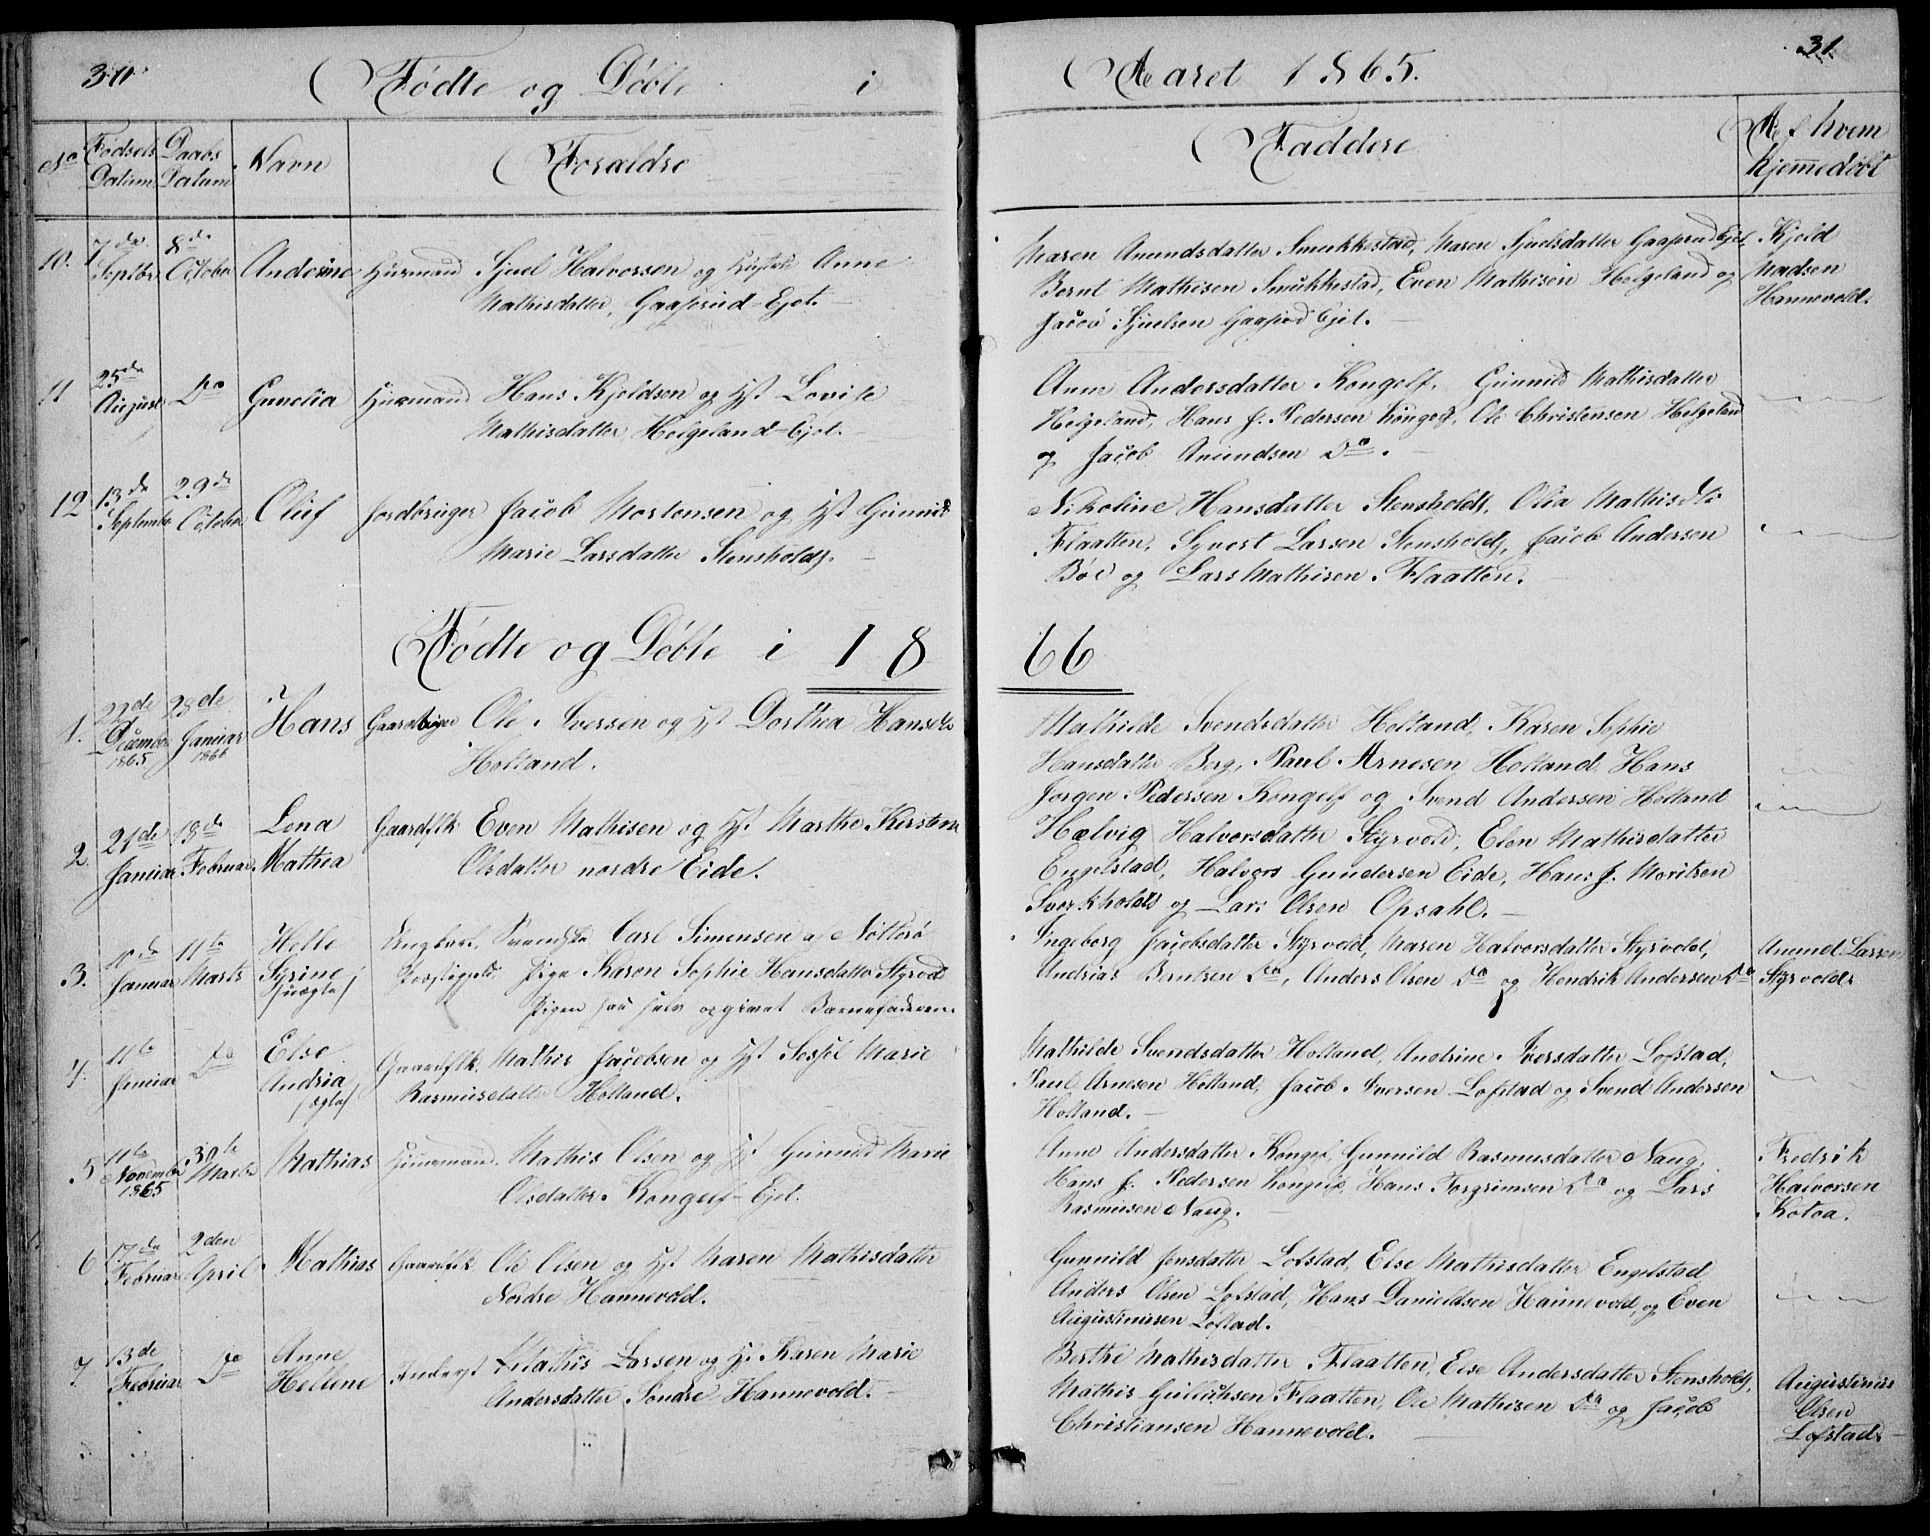 30.
Fødte og Døbte i
Aaret 1865.
31.
No
Fødsels Datum
Daabs Datum
Navn
Forældre
Faddere
Af hvem hjemmedøbt
10. 7de Septbr 8de October Anderine Huusmand Sjuel Halvorsen og Hustru Anne
Mathisdatter, Gaasrud-Ejet.
Maren Anundsdatter Smukkestad, Maren Sjuelsdatter Gaasrud Ejet,
Bernt Mathisen Smukkestad, Even Mathisen Helgeland og
Jacob Sjuelsen Gaasrud Ejet.
Kjeld
Madsen
Hannevold.
11 25de August Do Gunelia Huusmand Hans Kjeldsen og Hst Lovise
Mathisdatter, Helgeland-Ejet.
Anne Andersdatter Kongelf, Gunnild Mathisdatter
Helgeland, Hans J. Pedersen Kongelf, Ole Christensen Helgeland
og Jacob Anundsen Do.
12 13de September 29de October Oluf Jordbruger Jacob Mortensen og Hst Gunnild
Marie Larsdatter Stensholdt.
Nikoline Hansdatter Stensholdt, Olia Mathisdtr
Flaatten, Syvert Larsen Stensholdt, Jacob Andersen
Bøe og Lars Mathisen Flaatten.
Fødte og Døbte i 1866
1. 22de December 1865 28de Januar 1866 Hans Gaardbruger Ole Iversen og Hst Dorthea Hansdtr
Holtand.
Mathilde Svendsdatter Holtand, Karen Sophie
Hansdatter Berg, Paul Arnesen Holtand, Hans
Jørgen Pedersen Kongelf og Svend Andersen Holtand
2. 21de Januar 18de Februar Lena Mathea Gaardflk Even Mathisen og Hst Marthe Kirstine
Olsdatter nordre Eide.
Hælvig Halvorsdatter Styrvold, Elen Mathisdatter
Engelstad, Halvor Gundersen Eide, Hans J. Moritsen
Sverkholdt og Lars Olsen Opsahl.
3. Januar 11te Marts Helle Syrine /uægte/ Ungkarl Carl Simensen af Nøtterø
Pige Karen Sophie Hansdatter Styrvold
Pigen har selv opgivet Barnefaderen.
Ingeborg Jacobsdatter Styrvold, Maren Halvorsdatter Styrvold,
Andrias Berntsen Do, Anders Olsen Do og Hendrik Andersen Do
Anund Larsen
Styrvold
4. 11te Januar Do Else Andria /ægte/ Gaardflk. Mathis Jacobsen og Hst Sesjel Marie
Rasmusdatter Holtand.
Mathilde Svendsdatter Holtand, Andrine Iversdatter Lofstad,
Paul Arnesen Holtand, Jacob Iversen Lofstad og Svend Andersen
Holtand.
5 11te November 1865 30te Marts Mathias Huusmand, Mathis Olsen og Hst Gunnild Marie
Olsdatter Kongelf-Ejet.
Anne Andersdatter Kongelf, Gunnild Rasmusdatter Naug,
Hans J. Pedersen Kongelf, Hans Torgrimsen Do og Lars
Rasmusen Naug.
Fredrik
Halvorsen
Kotoa.
6 17de Februar 2den April Mathias Gaardflk Ole Olsen og Hst Maren Mathisdatter
Nordre Hannevold.
Gunnild Jensdatter Lofstad, Else Mathisdatter Engelstad
Anders Olsen Lofstad, Hans Danieldsen Hannevold, og Even
Augustinusen Lofstad.
7 13de Februar Do Anne Hellene Inderst Mathis Larsen og Hst Karen Marie
Andersdatter Søndre Hannevold.
Berthe Mathisdatter Flaatten, Else Andersdatter Stensholdt,
Mathis Gulliksen Flaatten, Ole Mathisen Do og Jacob
Christiansen Hannevold.
Augustinus
Olsen
Lofstad